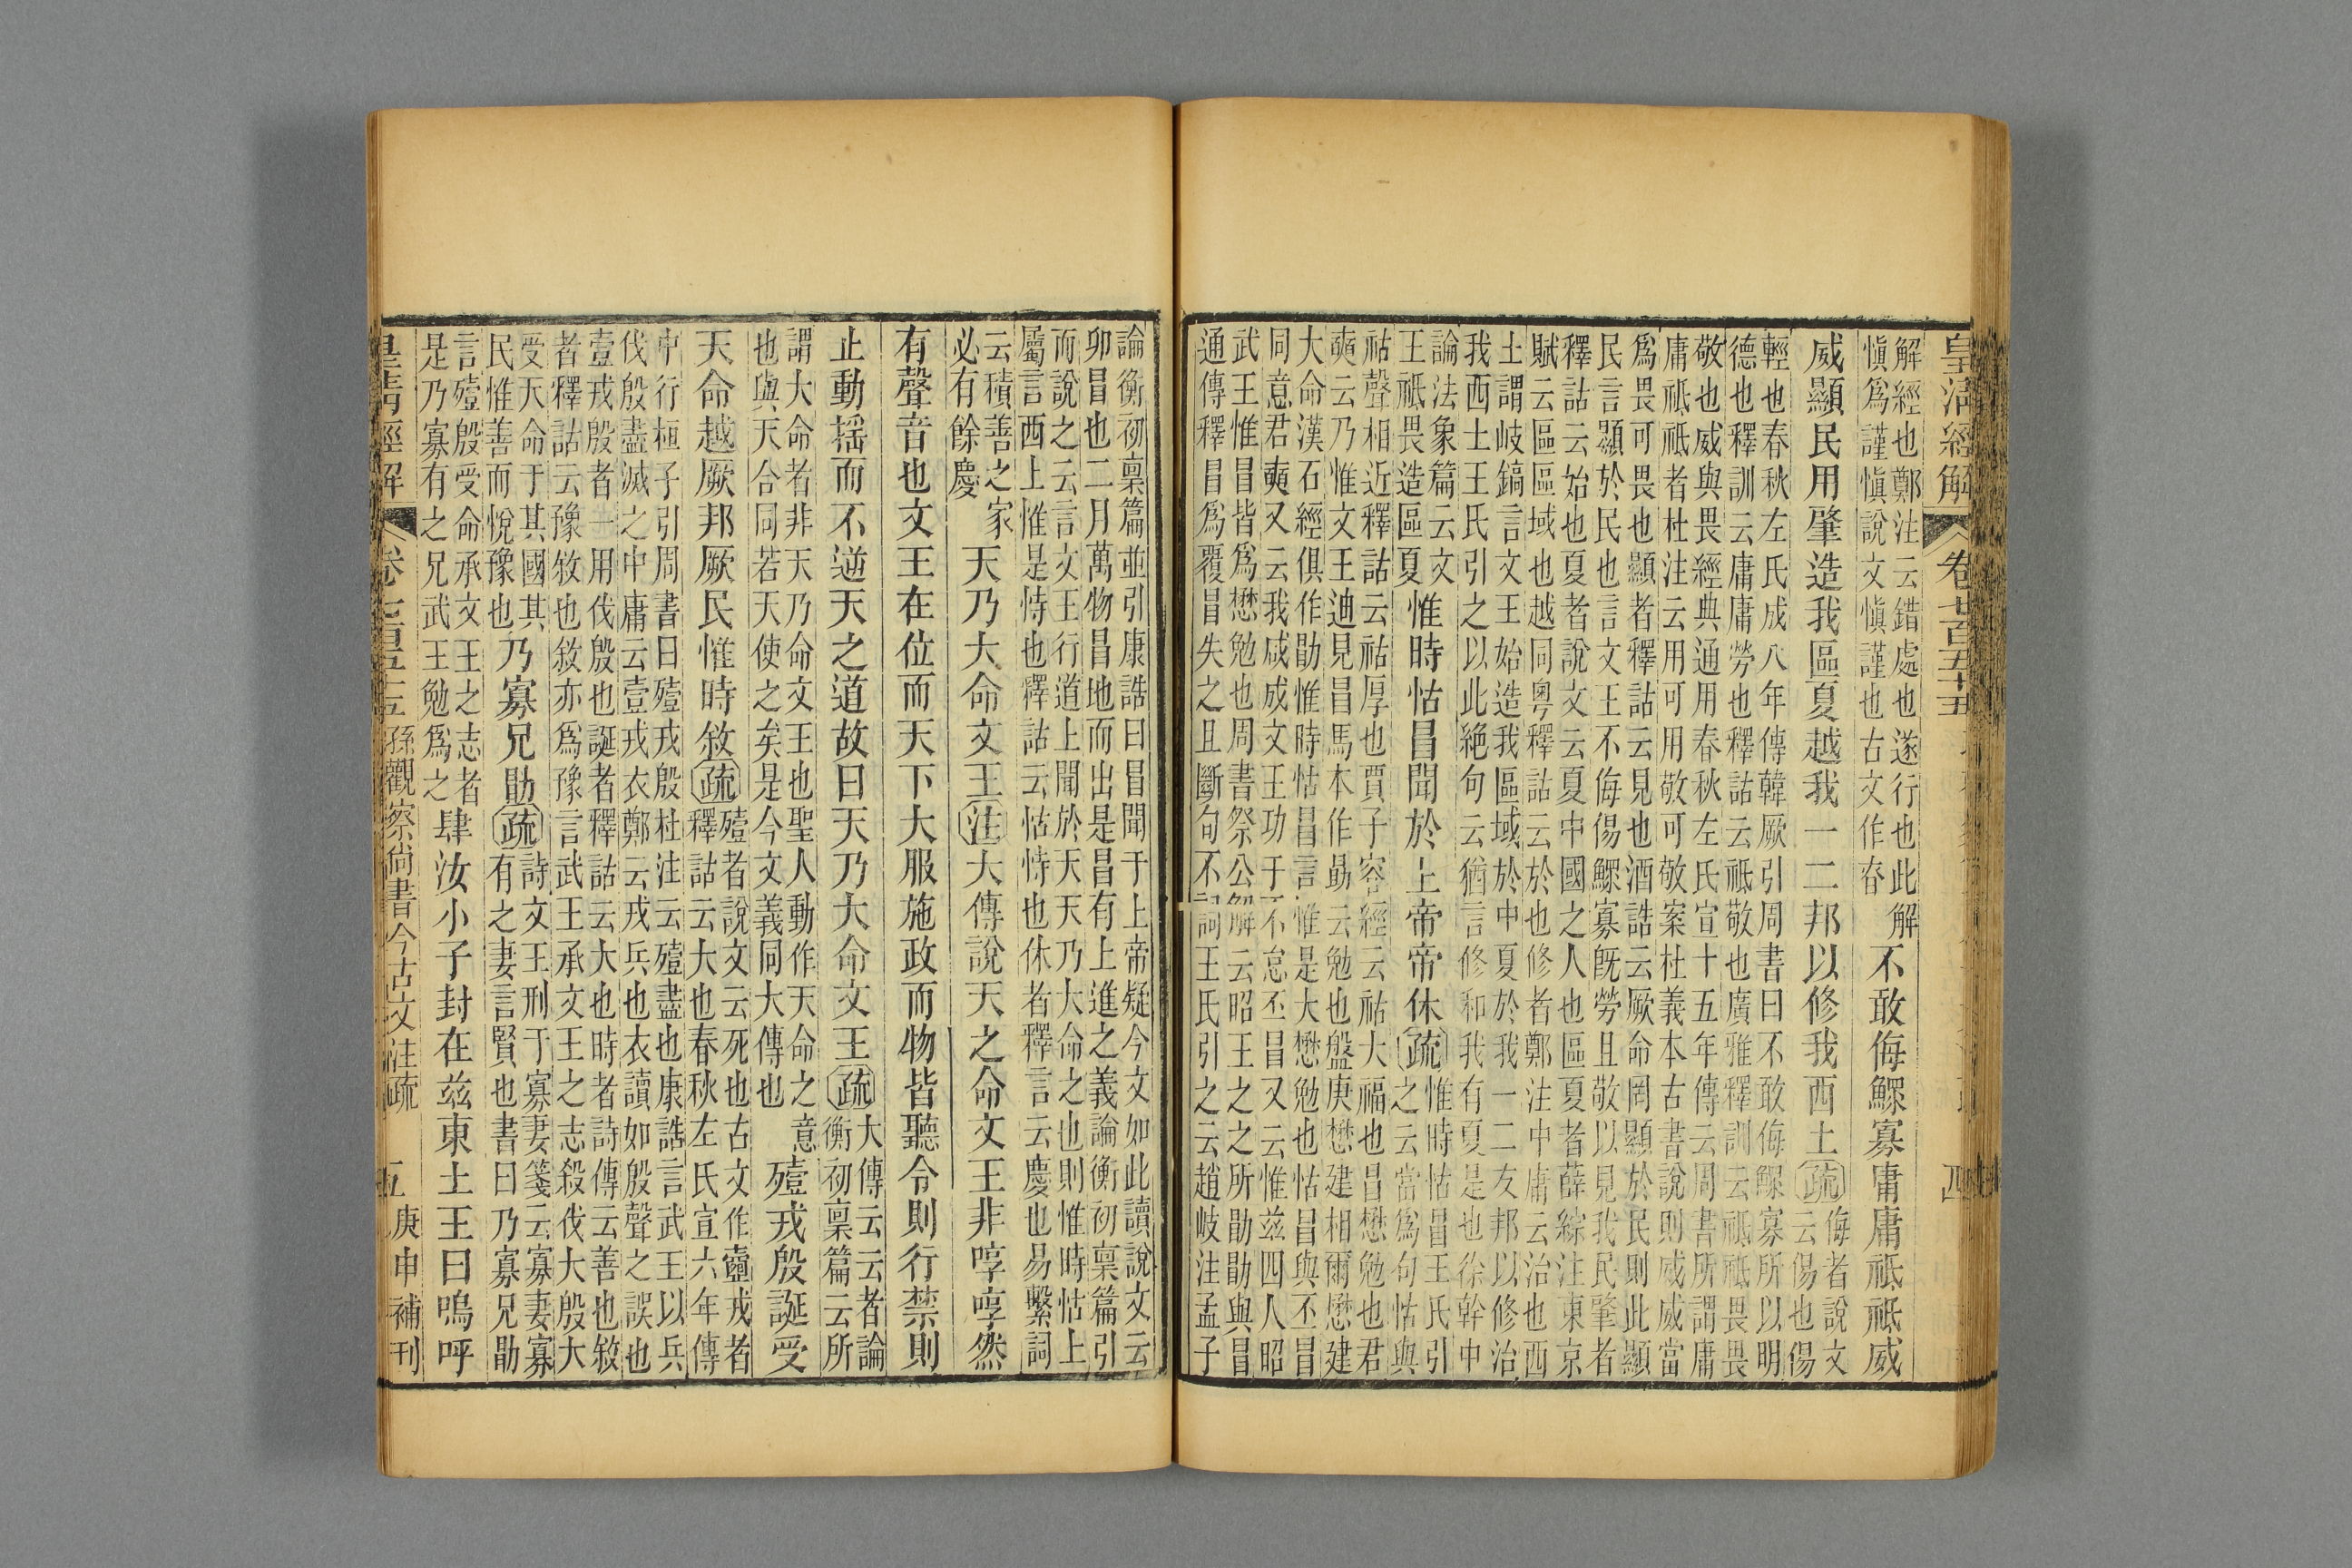 皇清經解 卷七百五十五 四
解經也鄭注云錯處也遂行也此解
愼爲謹愼說文愼謹也古文作昚
不敢侮鰥寡庸庸祗祗威
威顯民用肇造我區夏越我一二邦以修我西土疏
侮者說文云傷也傷
輕也春秋左氏成八年傳韓厥引周書曰不敢侮鰥寡所以明
德也釋訓云庸庸勞也釋詁云祗敬也廣雅釋訓云祗祗畏畏
敬也威與畏經典通用春秋左氏宣十五年傳云周書所謂庸
庸祗祗者杜注云用可用敬可敬案杜義本古書說則威威當
爲畏可畏也顯者釋詁云見也酒誥云厥命罔顯於民則此顯
民言顯於民也言文王不侮傷鰥寡既勞且敬以見我民肇者
釋詁云始也夏者說文云夏中國之人也區夏者薛綜注東京
賦云區區域也越同粵釋詁云於也修者鄭注中庸云治也西
土謂岐鎬言文王始造我區域於中夏於我一二友邦以修治
我西土王氏引之以此絕句云猶言修和我有夏是也徐幹中
論法象篇云文
王祗畏造區夏
惟時怙冒聞於上帝帝休疏
惟時怙冒王氏引
之云當爲句怙與
祜聲相近釋詁云祜厚也賈子容經云祜大福也冒懋勉也君
奭云乃惟文王迪見冒馬本作勗云勉也盤庚懋建相爾懋建
大命漢石經俱作勖惟時怙冒言惟是大懋勉也怙冒與丕冒
同意君奭又云我咸成文王功于不怠丕冒又云惟茲四人昭
武王惟冒皆爲懋勉也周書祭公解云昭王之之所勖勖與冒
通傳釋冒爲覆冒失之且斷句不詞王氏引之云趙岐注孟子
論衡初稟篇並引康誥曰冒聞于上帝疑今文如此讀說文云
卯冒也二月萬物冒地而出是冒有上進之義論衡初稟篇引
而說之云言文王行道上聞於天天乃大命之也則惟時怙上
屬言西土惟是恃也釋詁云怙恃也休者釋言云慶也易繫詞
云積善之家
必有餘慶
天乃大命文王注大傳說天之命文王非啍啍然
有聲音也文王在位而天下大服施政而物皆聽令則行禁則
止動搖而不逆天之道故曰天乃大命文王疏
大傳云云者論
衡初稟篇云所
謂大命者非天乃命文王也聖人動作天命之意
也與天合同若天使之矣是今文義同大傳也
殪戎殷誕受
天命越厥邦厥民惟時敘疏
殪者說文云死也古文作𧯆戎者
釋詁云大也春秋左氏宣六年傳
中行桓子引周書曰殪戎殷杜注云殪盡也康誥言武王以兵
伐殷盡滅之中庸云壹戎衣鄭云戎兵也衣讀如殷聲之誤也
壹戎殷者一用伐殷也誕者釋詁云大也時者詩傳云善也敘
者釋詁云豫敘也敘亦爲豫言武王承文王之志殺伐大殷大
受天命于其國其
民惟善而悅豫也
乃寡兄勖疏
詩文王刑于寡妻箋云寡妻寡
有之妻言賢也書曰乃寡兄勖
言殪殷受命承文王之志者
是乃寡有之兄武王勉爲之
肆汝小子封在茲東土王曰嗚呼
皇清經解 卷七百五十五 孫觀察尙書今古文注疏 五 庚申補刊